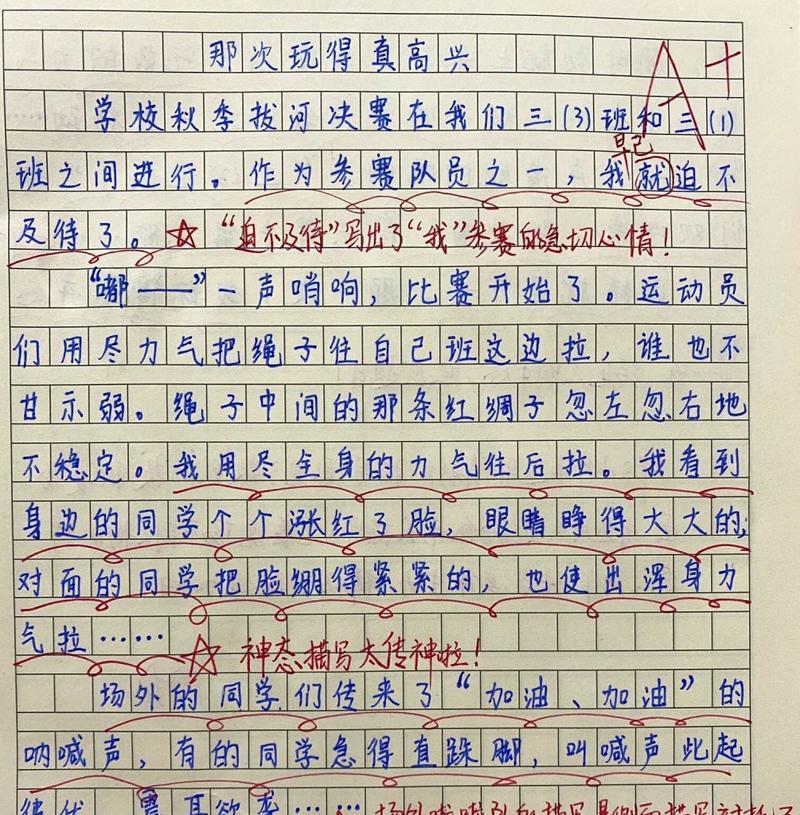 那次玩得真高兴
A+
学校秋季拔河决赛在我们三(3)班和三(1)
早已
班之间进行。作为参赛队员之一，我就迫不
及待了。☆“迫不及待”写出了“我”参赛的急切心情！
“嘟——”一声哨响，比赛开始了。运动员
们用尽力气把绳子往自己班这边拉，谁也不
甘示弱。绳子中间的那条红绸子忽左忽右地
不稳定。我用尽全身的力气往后拉。我看到
身边的同学个个涨红了脸，眼睛睁得大大的；
对面的同学把脸绷得紧紧的，也使出浑身力
气拉……☆神态描写太传神啦！
场外的同学们传来了“加油、加油”的
呐喊声，有的同学急得直跺脚，叫喊声此起
彼伏，震耳欲聋……